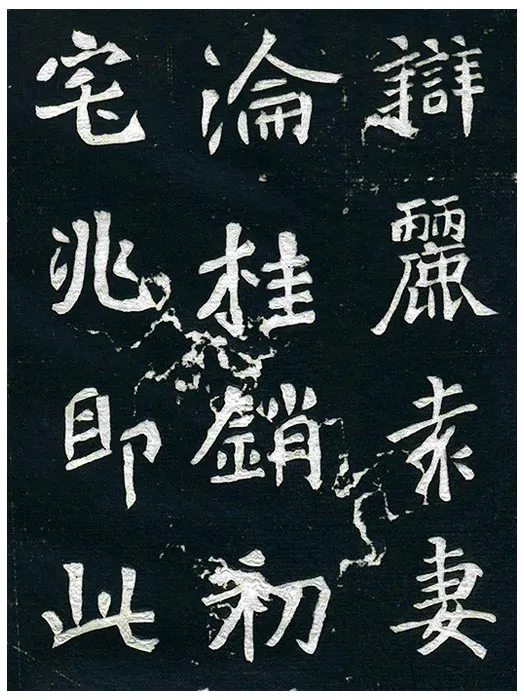 辯麗袁妻
淪桂銷初
宅兆即此